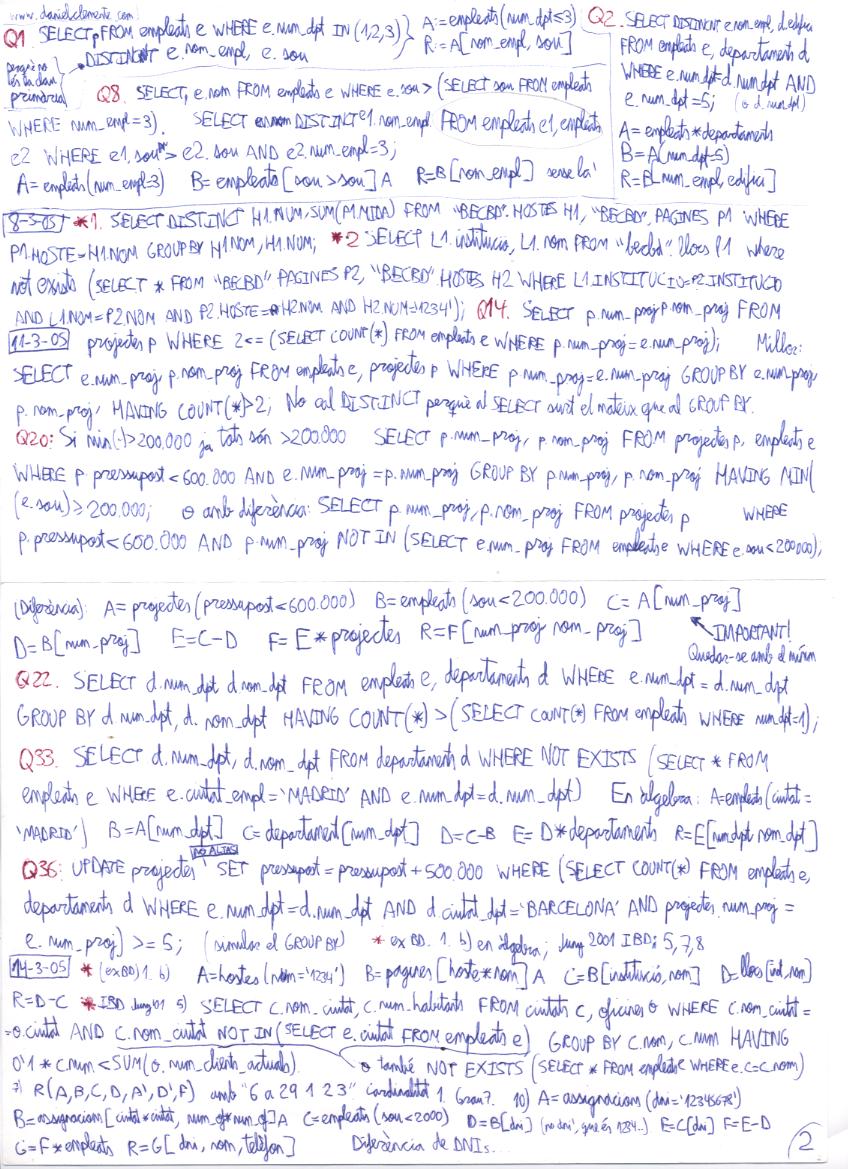 www.danielclemente.com
Q1 SELECT FROM empleats e WHERE e.num_dpt IN (1,2,3)
DISTINCT e.nom_empl, e. sou
perquè no és la clau primària
A:=empleats(num_dpt≤3)
R:=A[nom_empl, sou]
Q8. SELECT, e.nom FROM empleats e WHERE e.sou > (SELECT sou FROM empleats
WHERE num_empl=3). SELECT DISTINCT e1.nom_empl FROM empleats e1, empleats
e2 WHERE e1.sou > e2.sou AND e2.num_empl=3;
A=empleats(num_empl=3) B=empleats[sou>sou]A R=B[nom_empl] sense la'
Q2. SELECT DISTINCT e.nom_empl, d.edifici
FROM empleats e, departaments d
WHERE e.num_dpt=d.num_dpt AND
e.num_dpt=5; (o d.num_dpt)
A=empleats*departaments
B=A(num_dpt=5)
R=B[num_empl, edifici]
8-3-05 *1. SELECT DISTINCT H1.NUM, SUM(P1.MIDA) FROM "BECBD".HOSTES H1, "BECBD".PAGINES P1 WHERE
P1.HOSTE=H1.NOM GROUP BY H1.NOM, H1.NUM; *2 SELECT L1.institucio, L1.nom FROM "becbd".llocs P1 where
not exists (SELECT * FROM "BECBD" PAGINES P2, "BECBD".HOSTES H2 WHERE L1.INSTITUCIO=P2.INSTITUCIO
AND L1.NOM=P2.NOM AND P2.HOSTE=H2.NOM AND H2.NUM='1234'); Q14. SELECT p.num_proj p.nom_proj FROM
11-3-05 projectes p WHERE 2<= (SELECT COUNT(*) FROM empleats e WHERE p.num_proj=e.num_proj); Millor:
SELECT e.num_proj, p.nom_proj FROM empleats e, projectes p WHERE p.num_proj=e.num_proj GROUP BY e.num_proj,
p.nom_proj HAVING COUNT(*)>2; No cal DISTINCT perquè al SELECT surt el mateix que al GROUP BY.
Q20: Si min(·)>200.000 ja tots són >200000 SELECT p.num_proj, p.nom_proj FROM projectes p, empleats e
WHERE p.pressupost<600.000 AND e.num_proj=p.num_proj GROUP BY p.num_proj, p.nom_proj HAVING MIN(
(e.sou)>200.000; o amb diferència: SELECT p.num_proj, p.nom_proj FROM projectes p WHERE
p.pressupost<600.000 AND p.num_proj NOT IN (SELECT e.num_proj FROM empleats e WHERE e.sou<200000);
(Diferència): A=projectes(pressupost<600.000) B=empleats(sou<200.000) C=A[num_proj]
D=B[num_proj] E=C-D F=E*projectes R=F[num_proj nom_proj] IMPORTANT!
Quedar-se amb el mínim
Q22. SELECT d.num_dpt d.nom_dpt FROM empleats e, departaments d WHERE e.num_dpt=d.num_dpt
GROUP BY d.num_dpt, d.nom_dpt HAVING COUNT(*) > (SELECT COUNT(*) FROM empleats WHERE num_dpt=1);
Q33. SELECT d.num_dpt, d.nom_dpt FROM departaments d WHERE NOT EXISTS (SELECT * FROM
empleats e WHERE e.ciutat_empl='MADRID' AND e.num_dpt=d.num_dpt) En àlgebra: A=empleats(ciutat=
'MADRID') B=A[num_dpt] C=departament[num_dpt] D=C-B E=D*departaments R=E[num_dpt nom_dpt]
NO ALIAS
Q36: UPDATE projectes SET pressupost=pressupost+500.000 WHERE (SELECT COUNT(*) FROM empleats e,
departaments d WHERE e.num_dpt=d.num_dpt AND d.ciutat_dpt='BARCELONA' AND projectes.num_proj=
e.num_proj) >= 5; (simular el GROUP BY) * ex BD. 1. b) en àlgebra; Juny 2001 IBD; 5,7,8
14-3-05 *(ex BD) 1. b) A=hostes(nom='1234') B=pagines[hoste*nom]A C=B[institució, nom] D=llocs[inst, nom]
R=D-C * IBD Juny 01 5) SELECT c.nom_ciutat, c.num_habitants FROM ciutats c, oficines o WHERE c.nom_ciutat=
=o.ciutat AND c.nom_ciutat NOT IN (SELECT e.ciutat FROM empleats e) GROUP BY c.nom, c.num HAVING
0'1 * c.num<SUM(o.num_clients_actuals). o també NOT EXISTS (SELECT * FROM empleats e WHERE e.c=c.nom)
7) R(A,B,C,D,A',D',F) amb "6 a 29 1 2 3" cardinalitat 1. Grau 7. 10) A=assignacions(dni='12345678')
B=assignacions[ciutat*ciutat, num_of*num_of]A C=empleats(sou<2000) D=B[dni] (no dni', que és 1234..) E=C[dni] F=E-D
G=F*empleats R=G[dni, nom, telèfon] Diferència de DNIs...
2